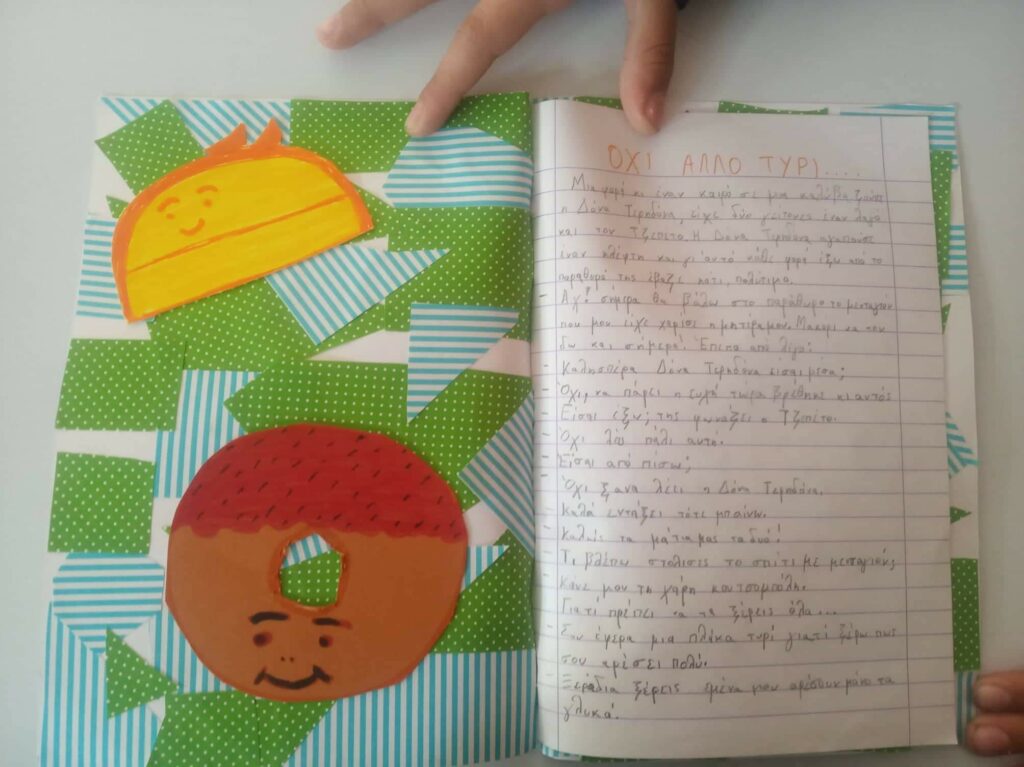 ΟΧΙ ΑΛΛΟ ΤΥΡΙ....
Μια φορά κι έναν καιρό σε μια καλύβα ζούσε
η Δόνα Τερηδόνα, είχε δύο γείτονες έναν λαγό
και τον Τζεπέτο. Η Δόνα Τερηδόνα αγαπούσε
έναν κλέφτη και γι' αυτό κάθε φορά έξω από το
παράθυρό της έβαζε κάτι, πολύτιμο.
- Αχ! σήμερα θα βάλω στο παράθυρο το μενταγιόν
που μου είχε χαρίσει η μητέρα μου. Μακάρι να τον
δω και σήμερα! Έπειτα από λίγο:
- Καλησπέρα Δόνα Τερηδόνα είσαι μέσα;
- Όχι, να πάρει η ευχή τώρα βρέθηκς κι αυτός
- Είσαι έξω; της φωνάζει ο Τζεπέτο.
- Όχι λέει πάλι αυτή.
- Είσαι από πίσω;
- Όχι ξανα λέει η Δόνα Τερηδόνα.
- Καλά εντάξει τότε μπαίνω.
- Καλώς τα μάτια μας τα δυό!
- Τι βλέπω στόλισες το σπίτι με μενταγιόν;
Κάνε μου τη χάρη κουτσομπόλη.
- Γιατί πρέπει να τα ξέρεις όλα...
- Σου έφερα μια πλάκα τυρί γιατί ξέρω πως
σου αρέσει πολύ.
- Ξεράδια ξέρεις εμένα μου αρέσουν μόνο τα
γλυκά.